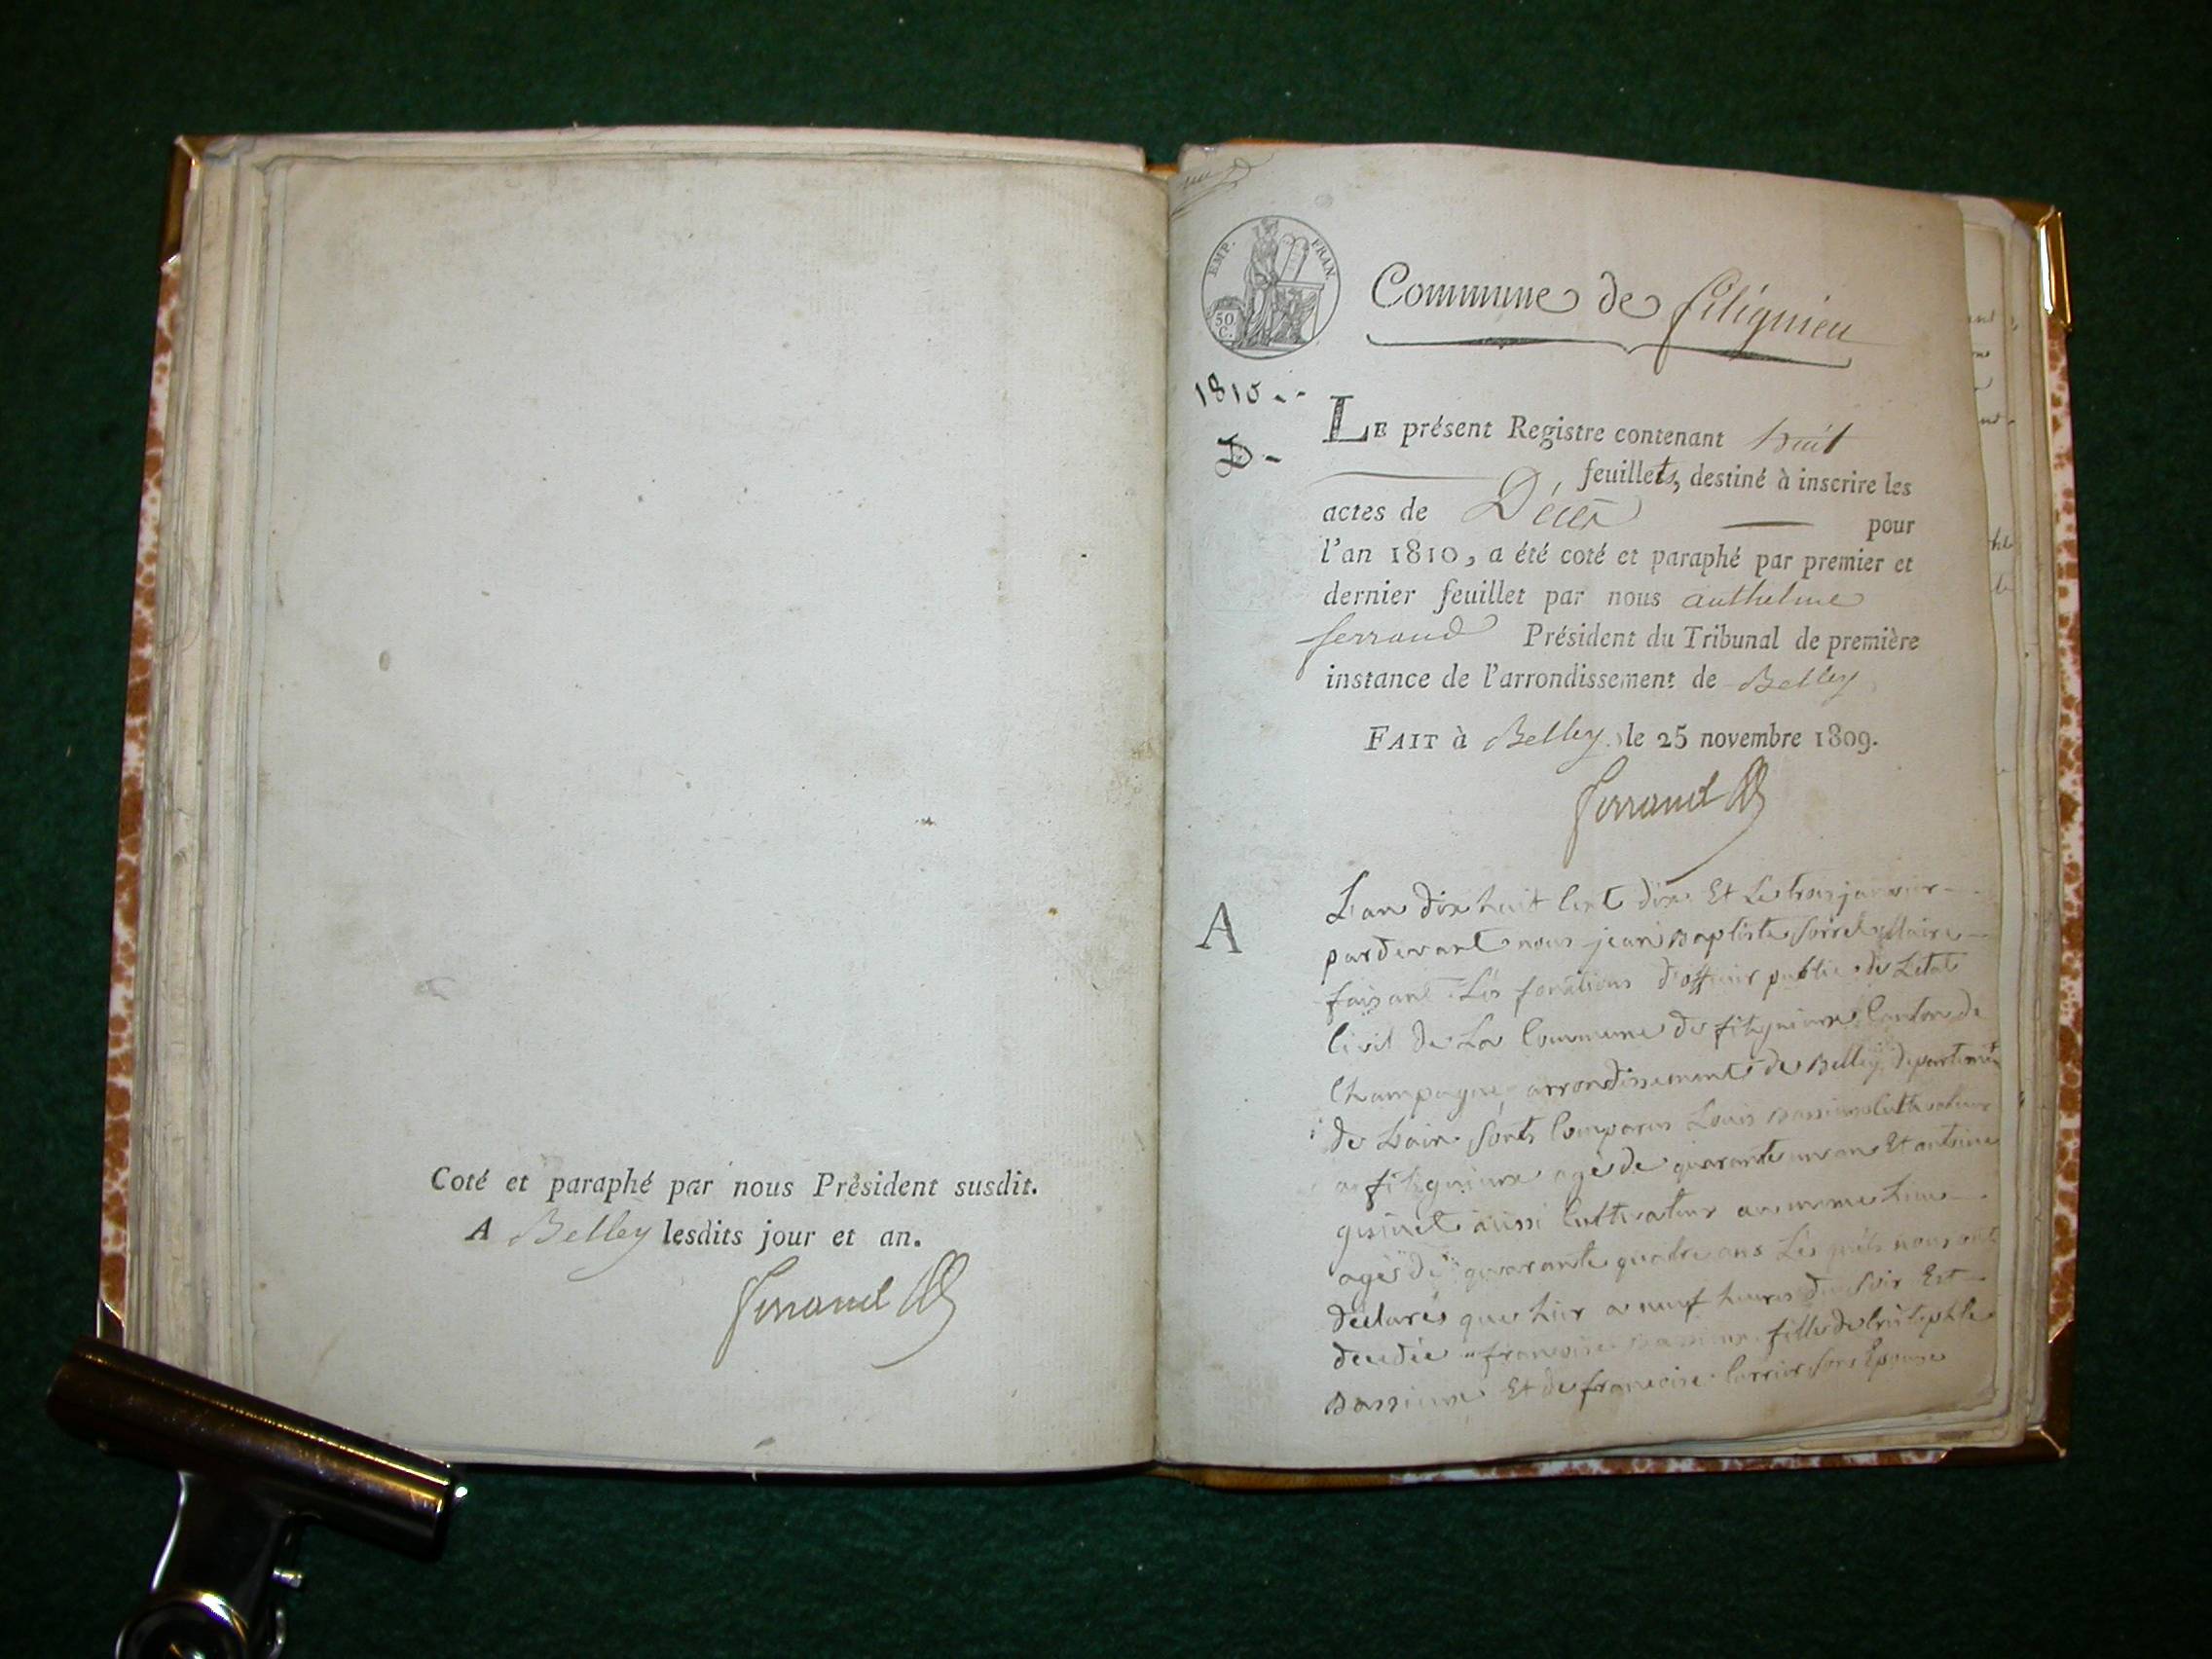 Coté et paraphé par nous Président susdit.
A Belley lesdits jour et an.
Ferrand
EMP. FRAN.
50
C.
Commune de fitignieu
1810
D
LE présent Registre contenant huit
feuillets, destiné à inscrire les
actes de Décès pour
l'an 1810, a été coté et paraphé par premier et
dernier feuillet par nous anthelme
ferrand Président du Tribunal de première
instance de l'arrondissement de Belley
FAIT à Belley, le 25 novembre 1809.
Ferrand
A
L'an dix huit Cent dix Et Le trois janvier
pardevant nous jean Baptiste Maire
faisant Les fonctions d'officier public de Letat
Civil de La Commune de Canton de
Champagne arrondissement de Belley departement
de Lain sont Comparus Louis Cultivateur
a agé de quarante un ans Et antoine
aussi Cultivateur au meme Lieu
agé de quarante quatre ans Les quels nous ont
declarés que hier a neuf heures du soir Est
decedée francoise fille de
Et de francoise son Epouse